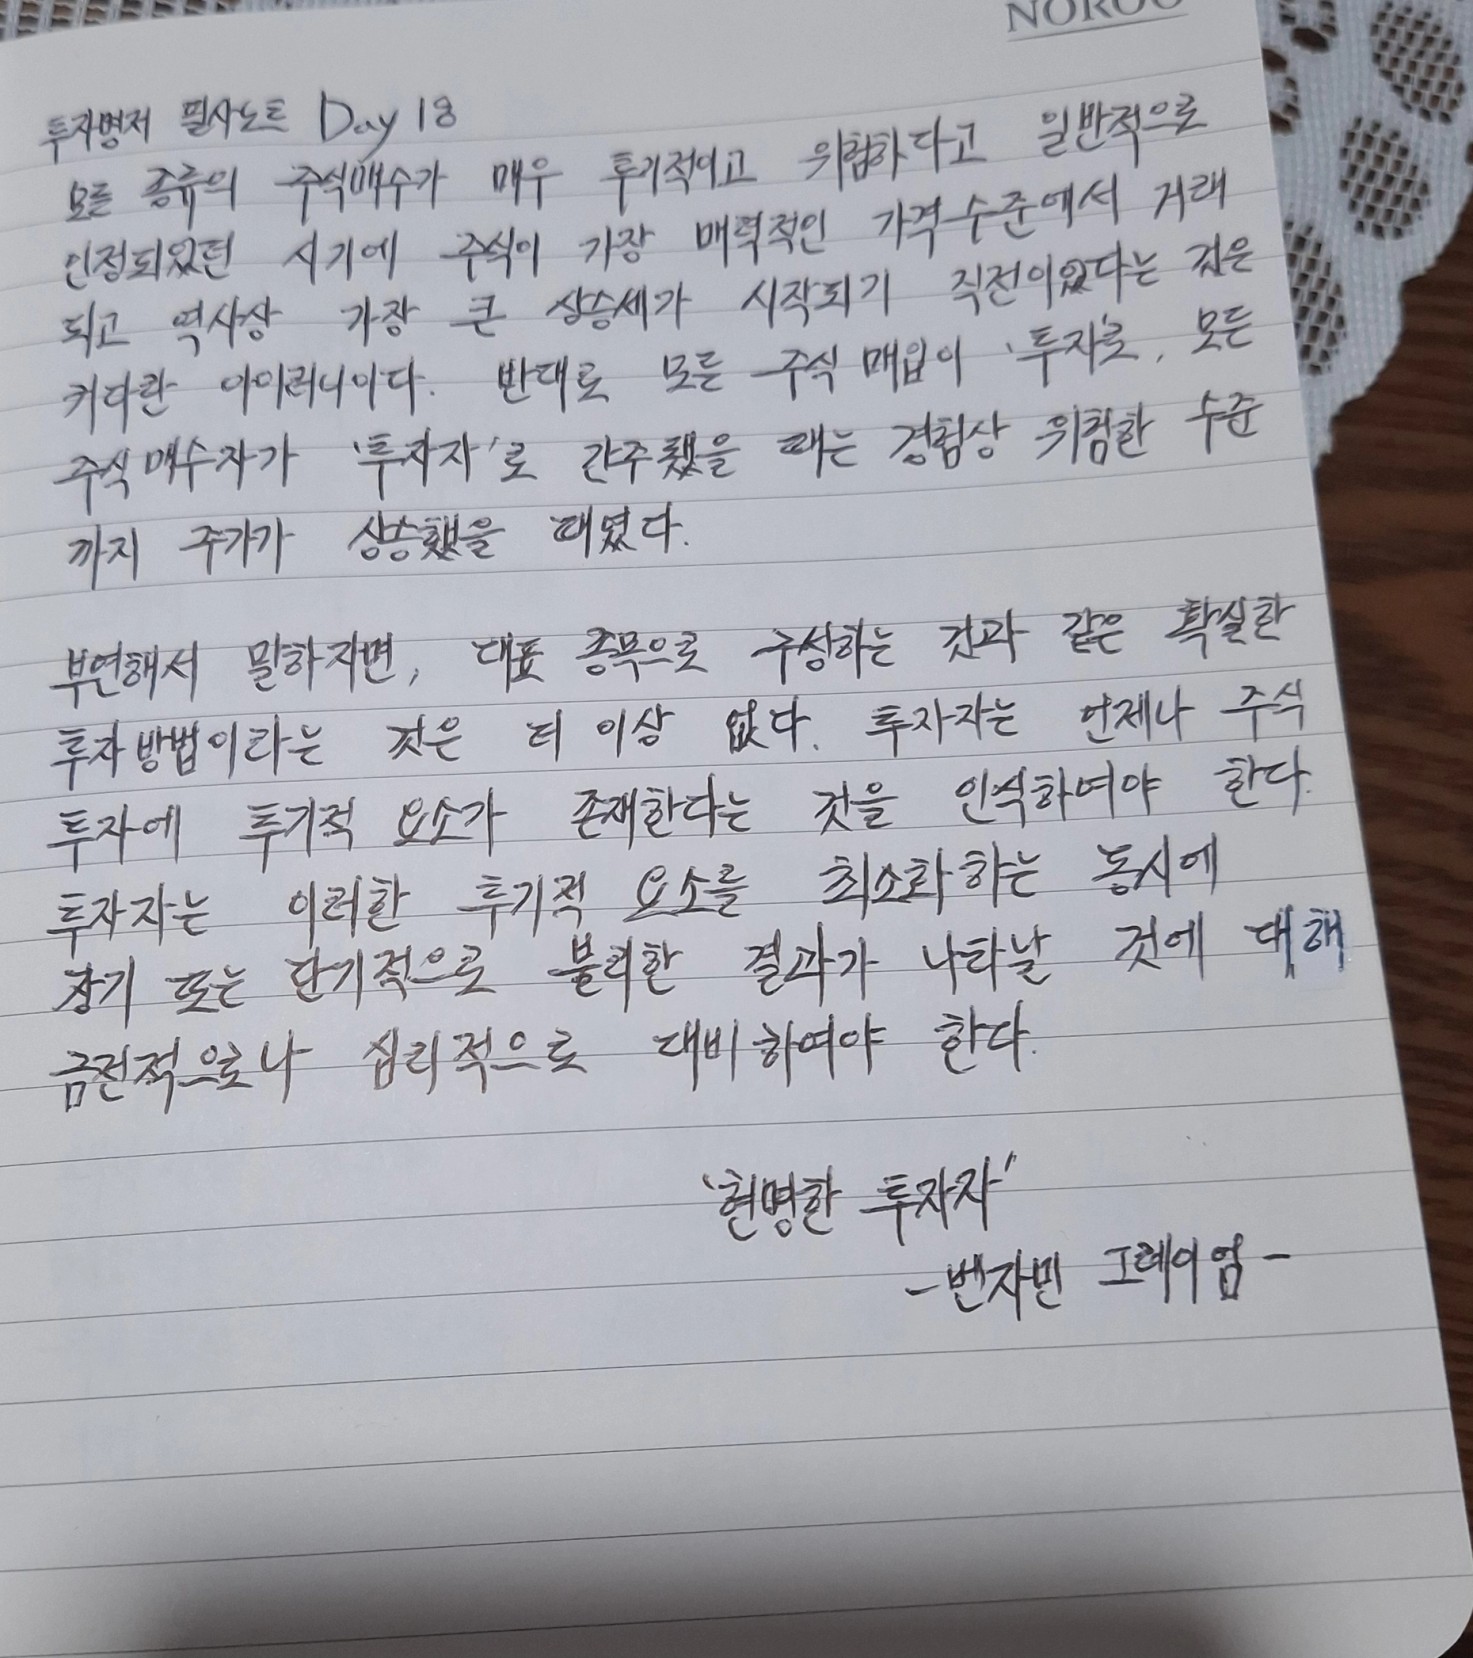 NOROO
투자명저 필사노트 Day 18
모든 종류의 주식매수가 매우 투기적이고 위험하다고 일반적으로
인정되었던 시기에 주식이 가장 매력적인 가격수준에서 거래
되고 역사상 가장 큰 상승세가 시작되기 직전이었다는 것은
커다란 아이러니이다. 반대로 모든 주식매입이 '투자'로, 모든
주식매수자가 '투자자'로 간주됐을 때는 경험상 위험한 수준
까지 주가가 상승했을 때였다.
부연해서 말하자면, 대표 종목으로 구성하는 것과 같은 확실한
투자방법이라는 것은 더 이상 없다. 투자자는 언제나 주식
투자에 투기적 요소가 존재한다는 것을 인식하여야 한다.
투자자는 이러한 투기적 요소를 최소화하는 동시에
장기 또는 단기적으로 불리한 결과가 나타날 것에 대해
금전적으로나 심리적으로 대비하여야 한다.
'현명한 투자자'
-벤자민 그레이엄-